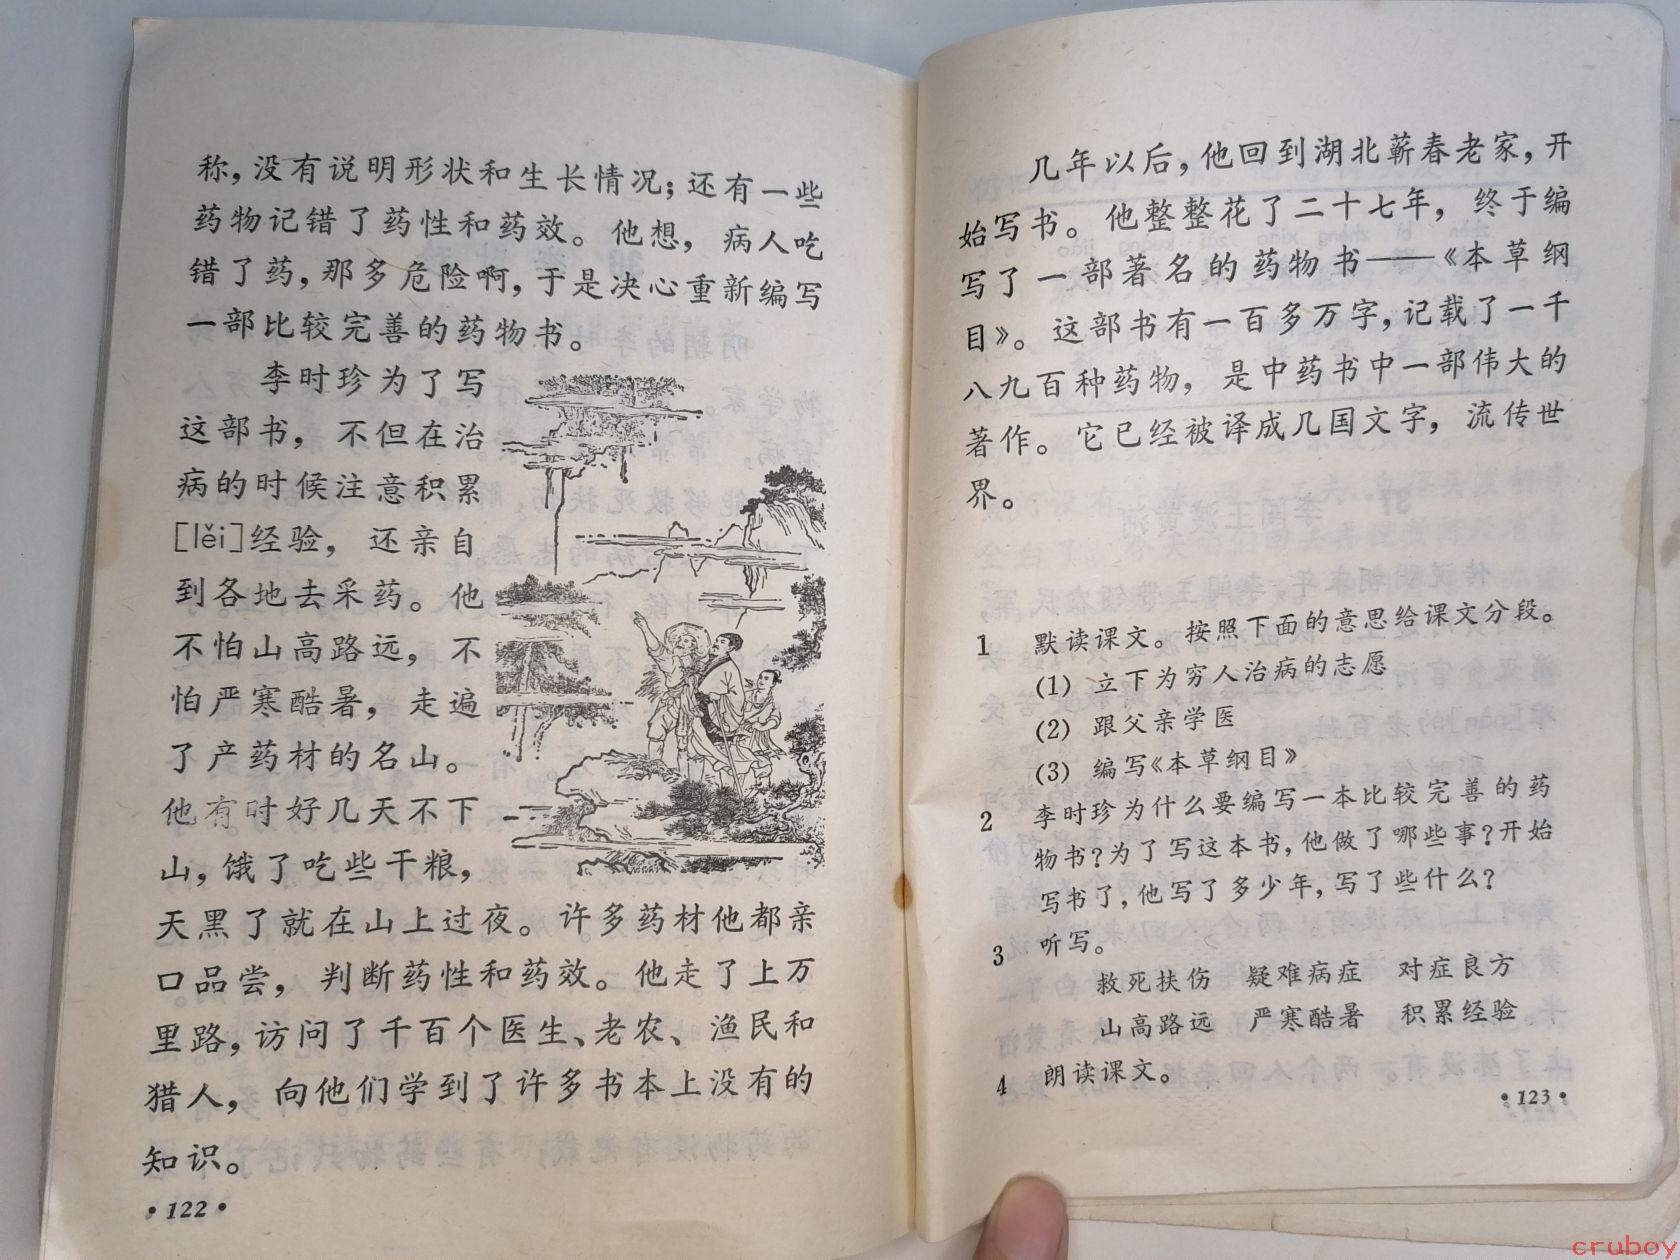 称，没有说明形状和生长情况；还有一些
药物记错了药性和药效。他想，病人吃
错了药，那多危险啊，于是决心重新编写
一部比较完善的药物书。
李时珍为了写
这部书，不但在治
病的时候注意积累
[lěi]经验，还亲自
到各地去采药。他
不怕山高路远，不
怕严寒酷暑，走遍
了产药材的名山。
他有时好几天不下
山，饿了吃些干粮，
天黑了就在山上过夜。许多药材他都亲
口品尝，判断药性和药效。他走了上万
里路，访问了千百个医生、老农、渔民和
猎人，向他们学到了许多书本上没有的
知识。
·122·
几年以后，他回到湖北蕲春老家，开
始写书。他整整花了二十七年，终于编
写了一部著名的药物书——《本草纲
目》。这部书有一百多万字，记载了一千
八九百种药物，是中药书中一部伟大的
著作。它已经被译成几国文字，流传世
界。
1 默读课文。按照下面的意思给课文分段。
(1) 立下为穷人治病的志愿
(2) 跟父亲学医
(3) 编写《本草纲目》
2 李时珍为什么要编写一本比较完善的药
物书？为了写这本书，他做了哪些事？开始
写书了，他写了多少年，写了些什么？
3 听写。
救死扶伤 疑难病症 对症良方
山高路远 严寒酷暑 积累经验
4 朗读课文。
·123·
cruboy